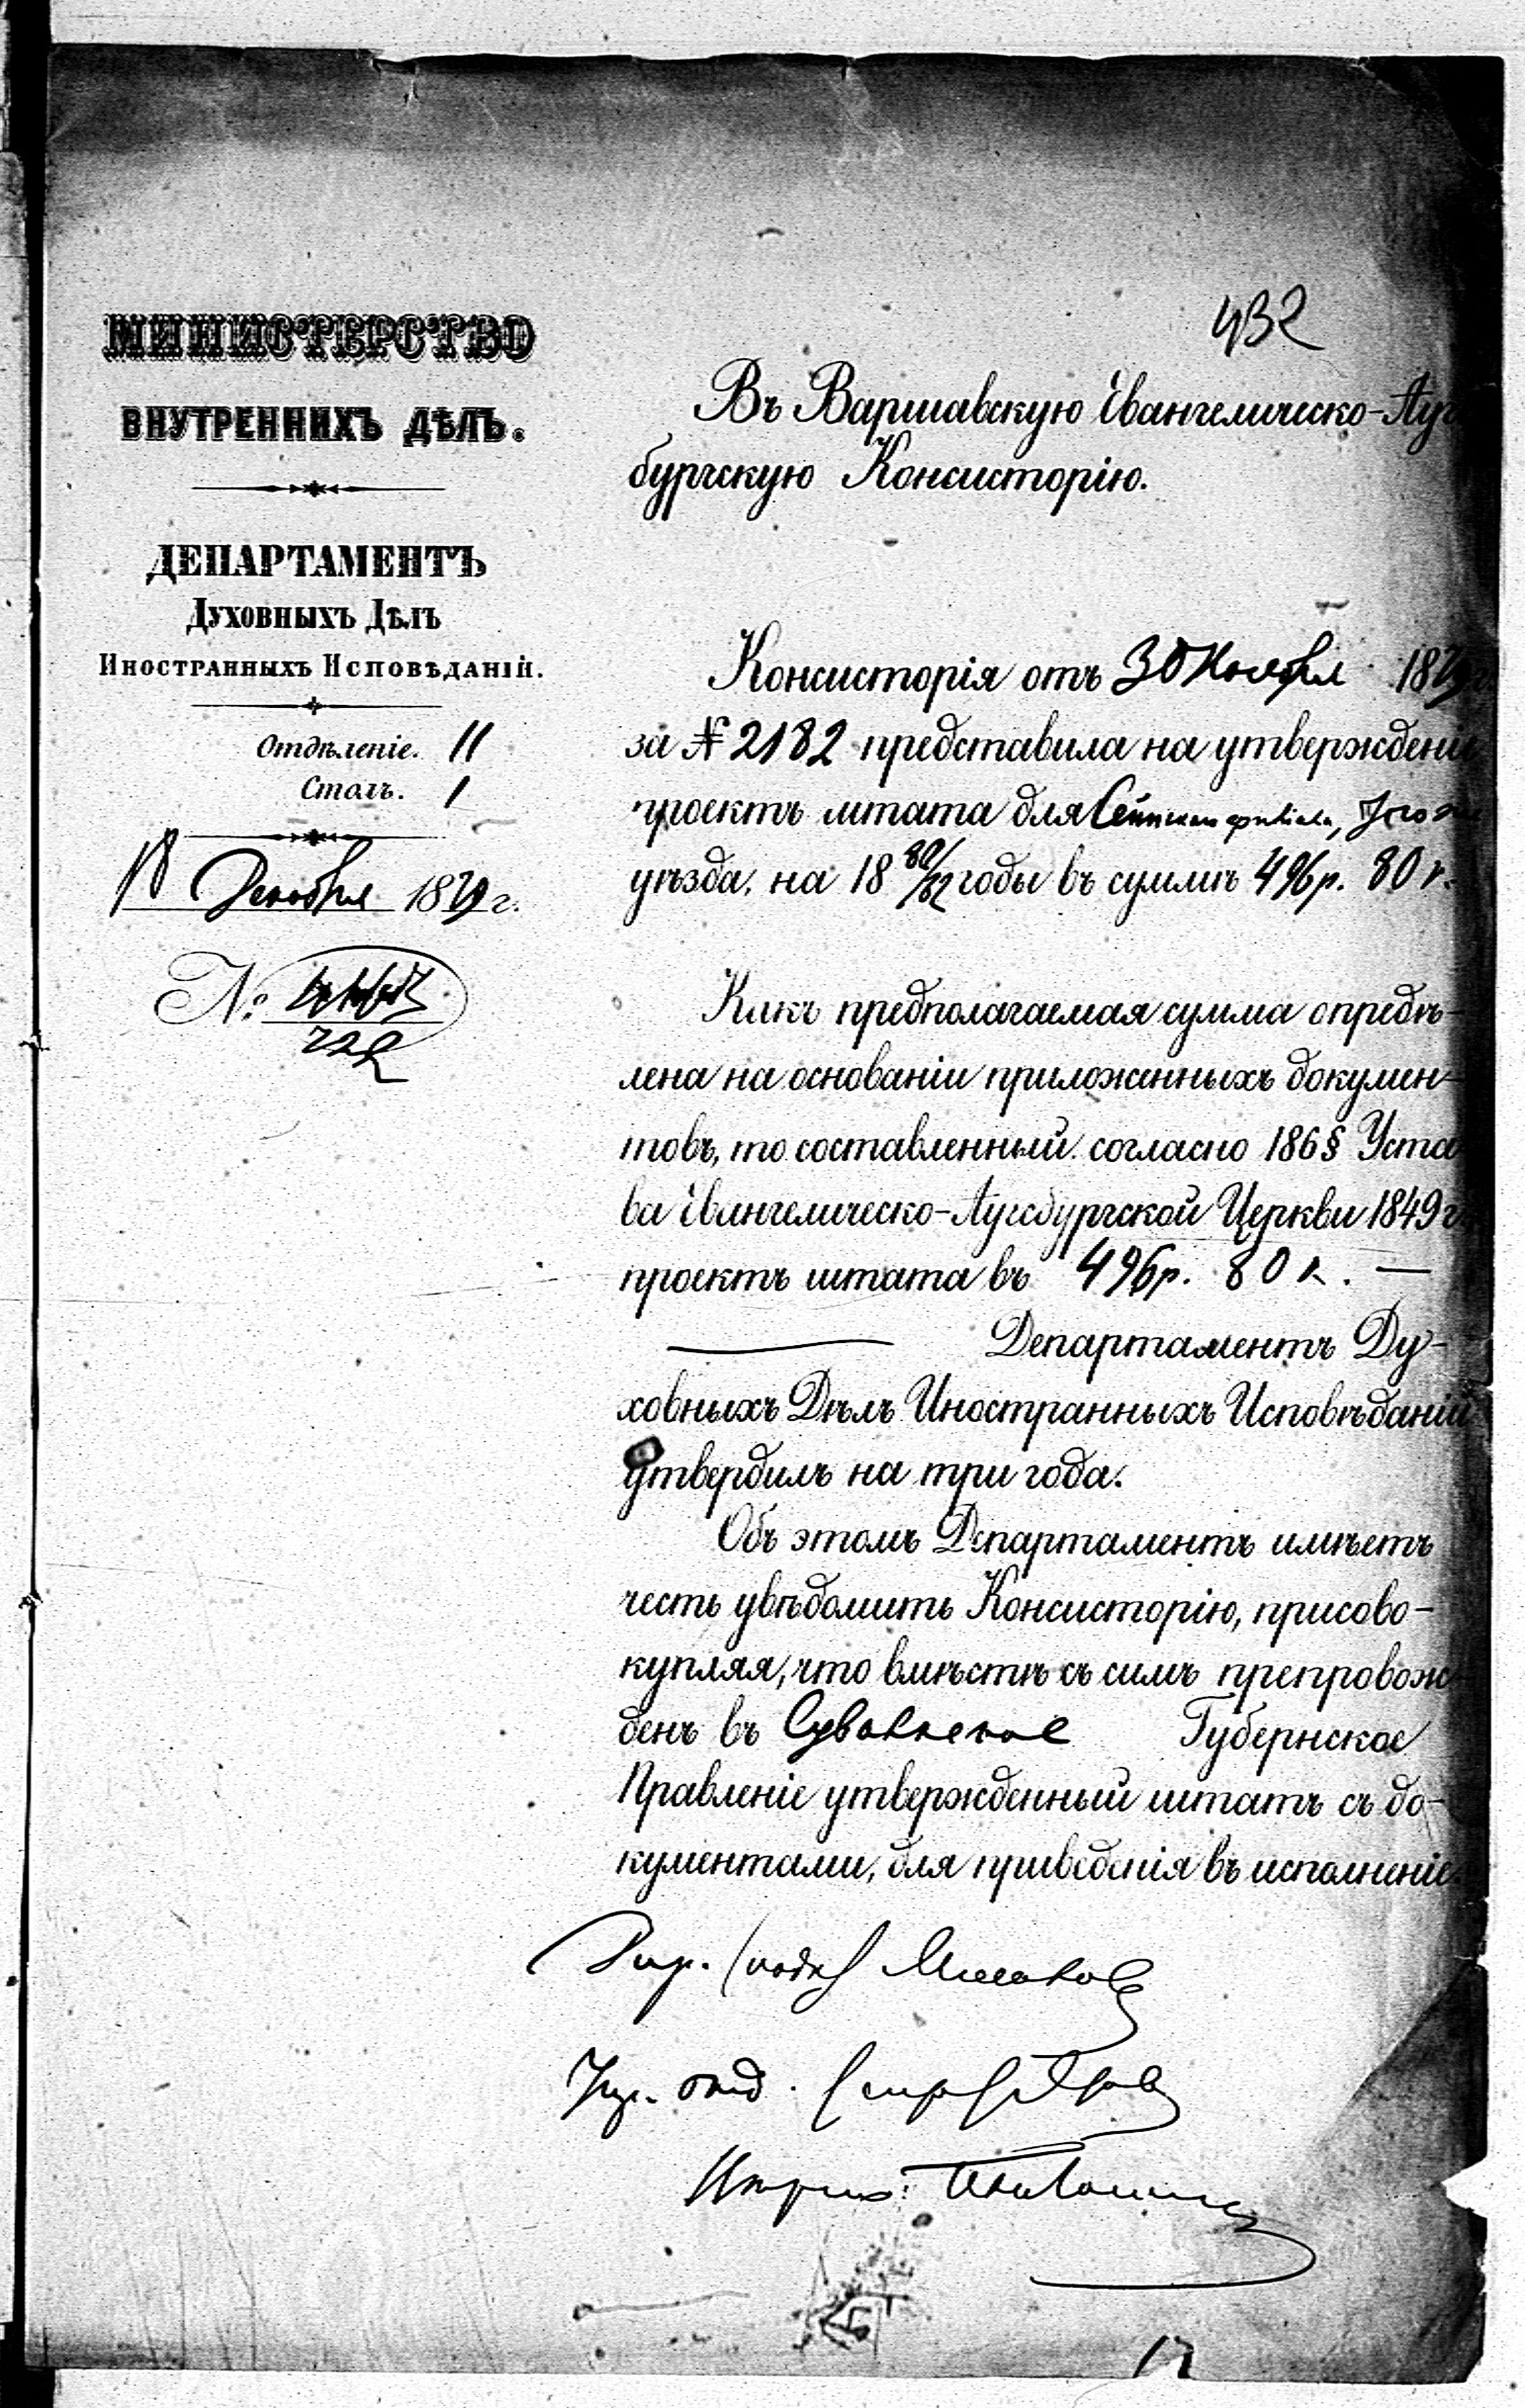 432
МИНИСТЕРСТВО
ВНУТРЕННИХЪ ДѢЛЪ.
ДЕПАРТАМЕНТЪ
ДУХОВНЫХЪ ДѢЛЪ
ИНОСТРАННЫХЪ ИСПОВѢДАНІЙ.
Отдѣленіе. II
Столъ. 1
18 Декабря 1879 г.
№
722
Въ Варшавскую Евангелическо-Ауг
бургскую Консисторію.
Консисторія отъ 30 Ноября 1879
за № 2182 представила на утвержденіе
проектъ штата для Сейнскаго филіала,
уѣзда, на 18 80/82 годы въ суммѣ 496 р. 80 к.
Какъ предполагаемая сумма опредѣ-
лена на основаніи приложенныхъ докумен-
товъ, то составленный согласно 186 § Уста
ва Евангелическо-Аугсбургской Церкви 1849 г.
проектъ штата въ 496 р. 80 к. —
— Департаментъ Ду-
ховныхъ Дѣлъ Иностранныхъ Исповѣданій
утвердилъ на три года.
Объ этомъ Департаментъ имѣетъ
честь увѣдомить Консисторію, присово-
купляя, что вмѣстѣ съ симъ препровож
денъ въ Сувалкское Губернское
Правленіе утвержденный штатъ съ до-
кументами, для приведенія въ исполненіе.
Дир. (подп)
отд.
17